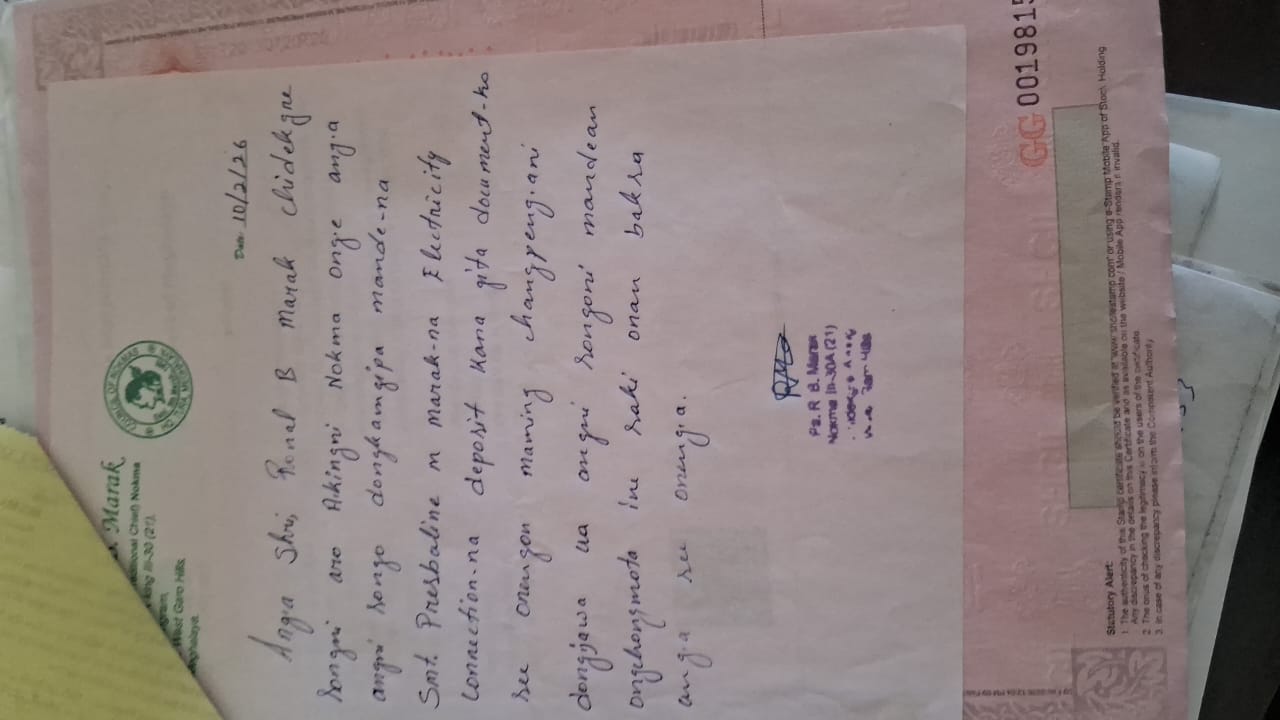 Marak
itional Chief) Nokma
king III-30 (21).
West Garo Hills
COUNCIL OF NOKMAS
Date: 10/2/26
Anga Shri, Ronal B Marak Chidekgre
songni aro Akingni Nokma onge ang.a
angni songo dongkamgipa mande-na
Smt. Presbaline M Marak-na Electricity
Connection-na deposit kana gita document-ko
see onengon maming changpengiani
dongjawa ua angni songoni mandean
ongchongmota ine saki onan baksa
ang.a see onengia.
Ps. R B. Marak
Nokma III-30A (21)
GG 0019815
Statutory Alert:
1. The authenticity of this Stamp certificate should be verified at 'www.shcilestamp.com' or using e-Stamp Mobile App of Stock Holding
Any discrepancy in the details on this Certificate and as available on the website / Mobile App renders it invalid.
2. The onus of checking the legitimacy is on the users of the certificate.
3. In case of any discrepancy please inform the Competent Authority